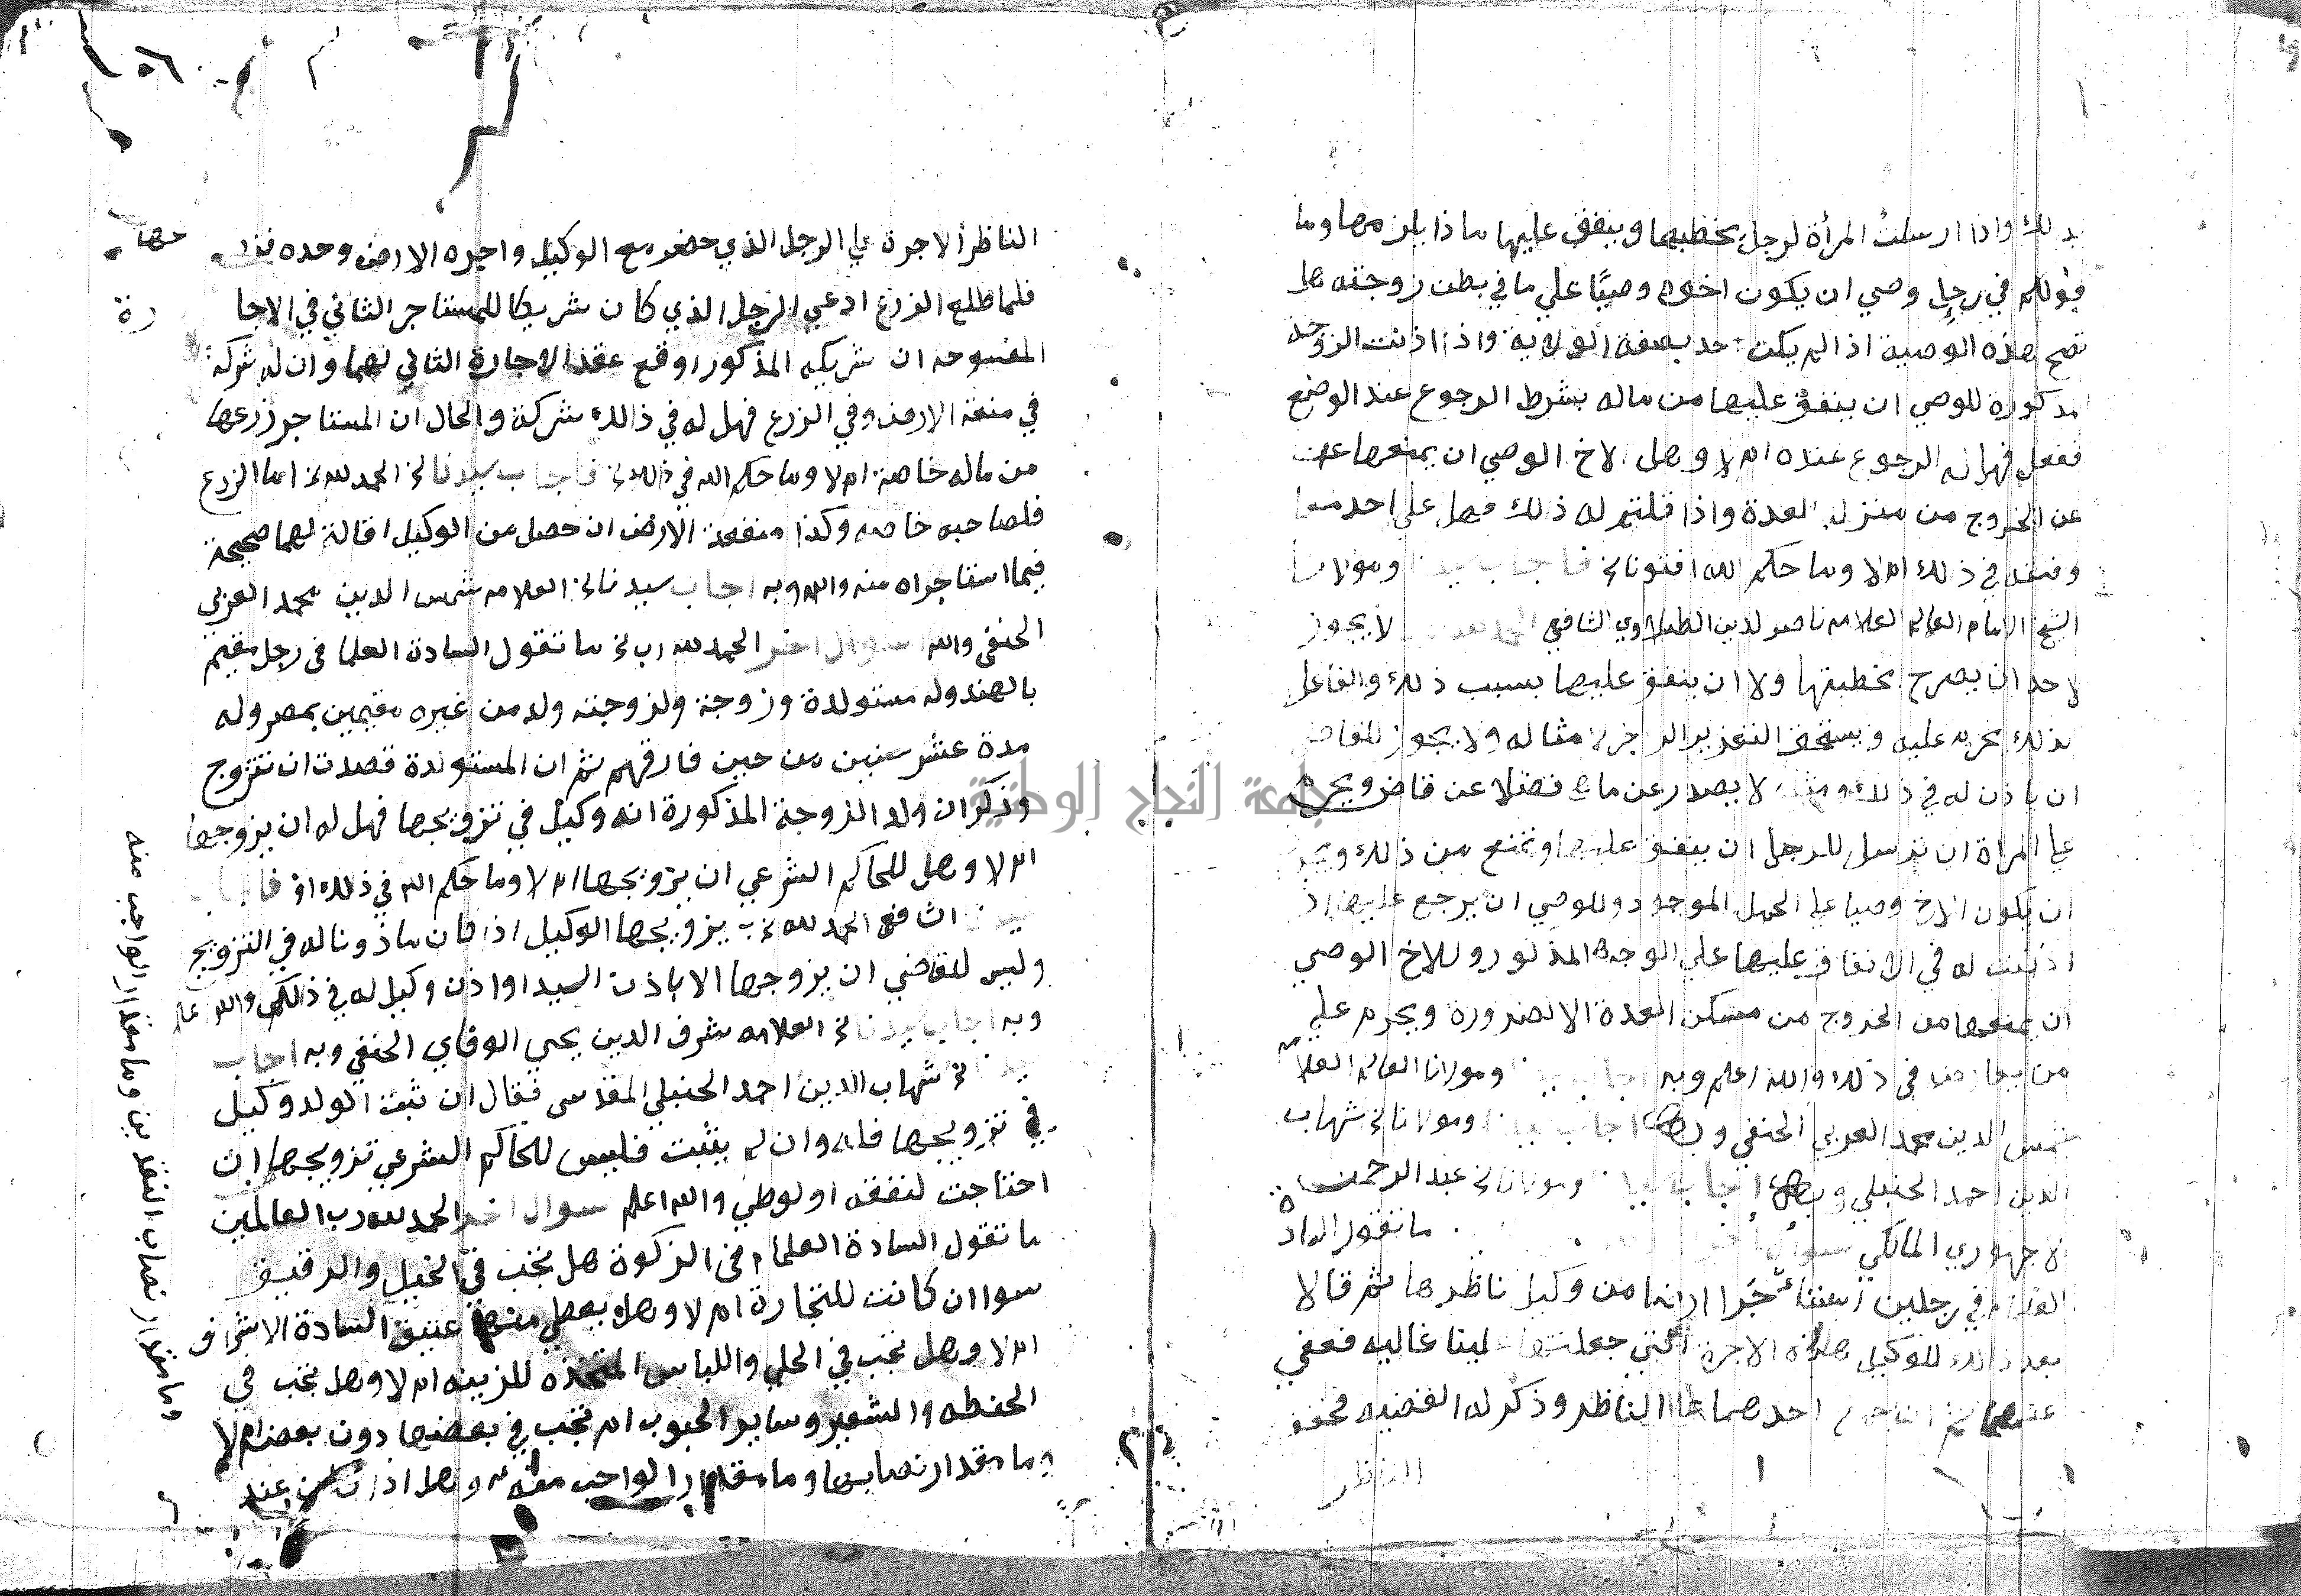 بذلك واذا ارسلت المرأة لرجل يخطبها وينفق عليها ماذا يلزمها وما
قولكم في رجل وصي ان يكون اخوه وصيًا علي ما في بطن زوجته هل
تصح هذه الوصية اذا لم يكن جد بصفة الولاية واذا اذنت الزوجة
المذكورة للوصي ان ينفق عليها من ماله بشرط الرجوع عند الوضع
ففعل فهل له الرجوع عنده ام لا وهل للاخ الوصي ان يمنعها
عن الخروج من منزل العدة واذا قلتم له ذلك فهل علي احد
في ذلك ام لا وما حكم الله افتونا فاجاب سيدنا ومولانا
الشيخ الامام العالم العلامه ناصر الدين الطبلاوي الشافعي الحمد لله لا يجوز
لاحد ان يصرح بخطبتها ولا ان ينفق عليها بسبب ذلك والفاعل
لذلك يحرم عليه ويستحق التعزير الزاجر لامثاله ولا يجوز للقاضي
ان ياذن له في ذلك ومثله لا يصدر عن فضلا عن قاض ويحرم
علي المراة ان ترسل للرجل ان ينفق عليها وتمنع من ذلك
ان يكون الاخ وصيا علي الحمل الموجود وللوصي ان يرجع عليها اذا
اذنت له في الانفاق عليها علي الوجه المذكور وللاخ الوصي
ان يمنعها من الخروج من مسكن العدة الا لضرورة ويحرم علي
من يعارضه في ذلك والله اعلم وبه اجاب سيدنا ومولانا العالم العلامه
شمس الدين محمد الغزي الحنفي وبه اجاب سيدنا ومولانا شهاب
الدين احمد الحنبلي وبه اجاب سيدنا ومولانا عبد الرحمن
الاجهوري المالكي سوال اخر ما تقول السادة
العلماء في رجلين ارضا من وكيل ناظرها ثم قالا
بعد ذلك للوكيل هذه الاجرة التي جعلتها علينا غاليه فعفي
عنهما ثم احدهما علي الناظر وذكر له القضيه
الناظر
جامعة النجاح الوطنية
١٥٦
الناظر الاجرة علي الرجل الذي حضر مع الوكيل واجره الارض وحده
فلما طلع الزرع ادعي الرجل الذي كان شريكا للمستاجر الثاني في الاجا رة
المفسوحه ان شريكه المذكور اوقع عقد الاجارة الثاني لهما وان له شركة
في منفعة الارض وفي الزرع فهل له في ذلك شركة والحال ان المستاجر زرعها
من ماله خاصة ام لا وما حكم الله في ذلك فاجاب سيدنا الحمد لله اما الزرع
فلصاحبه خاصه وكذا منفعة الارض ان حصل من الوكيل اقالة لهما صحيحة
فيما استاجراه منه والله وبه اجاب سيدنا العلامه شمس الدين محمد الغزي
الحنفي والله سوال اخر الحمد لله رب ما تقول السادة العلما في رجل مقيم
بالهند وله مستولدة وزوجة ولزوجته ولد من غيره مقيمين بمصر وله
مدة عشر سنين من حين فارقهم ثم ان المستولدة قصدت ان تتزوج
وذكر ان ولد الزوجة المذكورة انه وكيل في تزويجها فهل له ان يزوجها
ام لا وهل للحاكم الشرعي ان يزوجها ام لا وما حكم الله في ذلك
الحمد لله يزوجها الوكيل اذا كان ماذونا له في التزويج
وليس للقاضي ان يزوجها الا باذن السيد او اذن وكيل له في ذلك والله
وبه اجاب سيدنا العلامه شرف الدين يحيي الوفاي الحنفي وبه اجاب
سيدنا شهاب الدين احمد الحنبلي المقدسي فقال ان ثبت الولد وكيل
في تزويجها فله وان لم يثبت فليس للحاكم الشرعي تزويجها ان
احتاجت لنفقه او لوطي والله اعلم سوال اخر الحمد لله رب العالمين
ما تقول السادة العلماء في الزكوة هل تجب في الخيل والرقيق
سوا ان كانت للتجارة ام لا وهل يعطي منها عتيق السادة الاشراف
ام لا وهل تجب في الحلي واللباس المتخذه للزينه ام لا وهل تجب في
الحنطه والشعير وساير الحبوب ام تجب في بعضها دون بعض ام لا
وما مقدار نصابها وما مقدار الواجب منه وهل اذا كان عند
وما مقدار نصاب النقدين وما مقدار الواجب منه